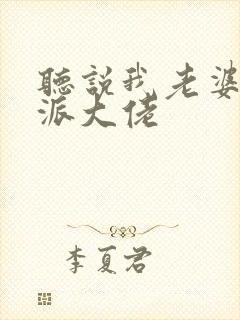 聽說我老婆
派大佬
李夏君